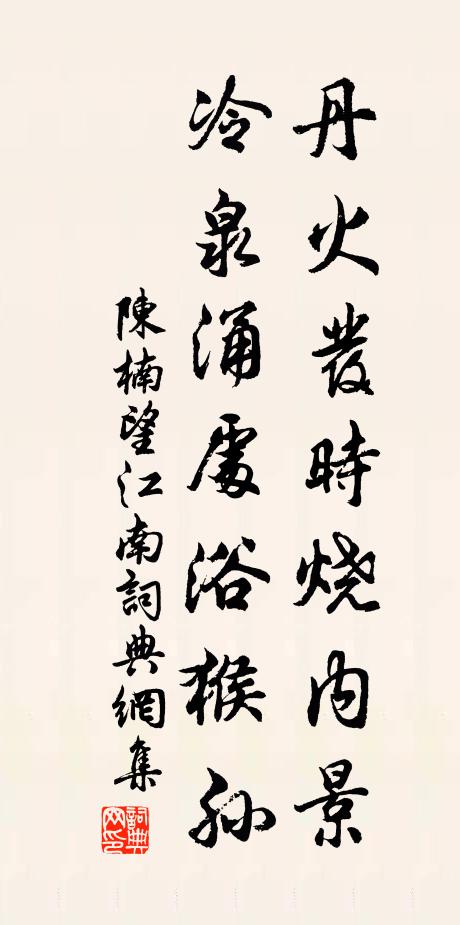 丹火發時燒內景
冷泉涌處浴猴孫
陳楠望江南詞典網集
詞典網印